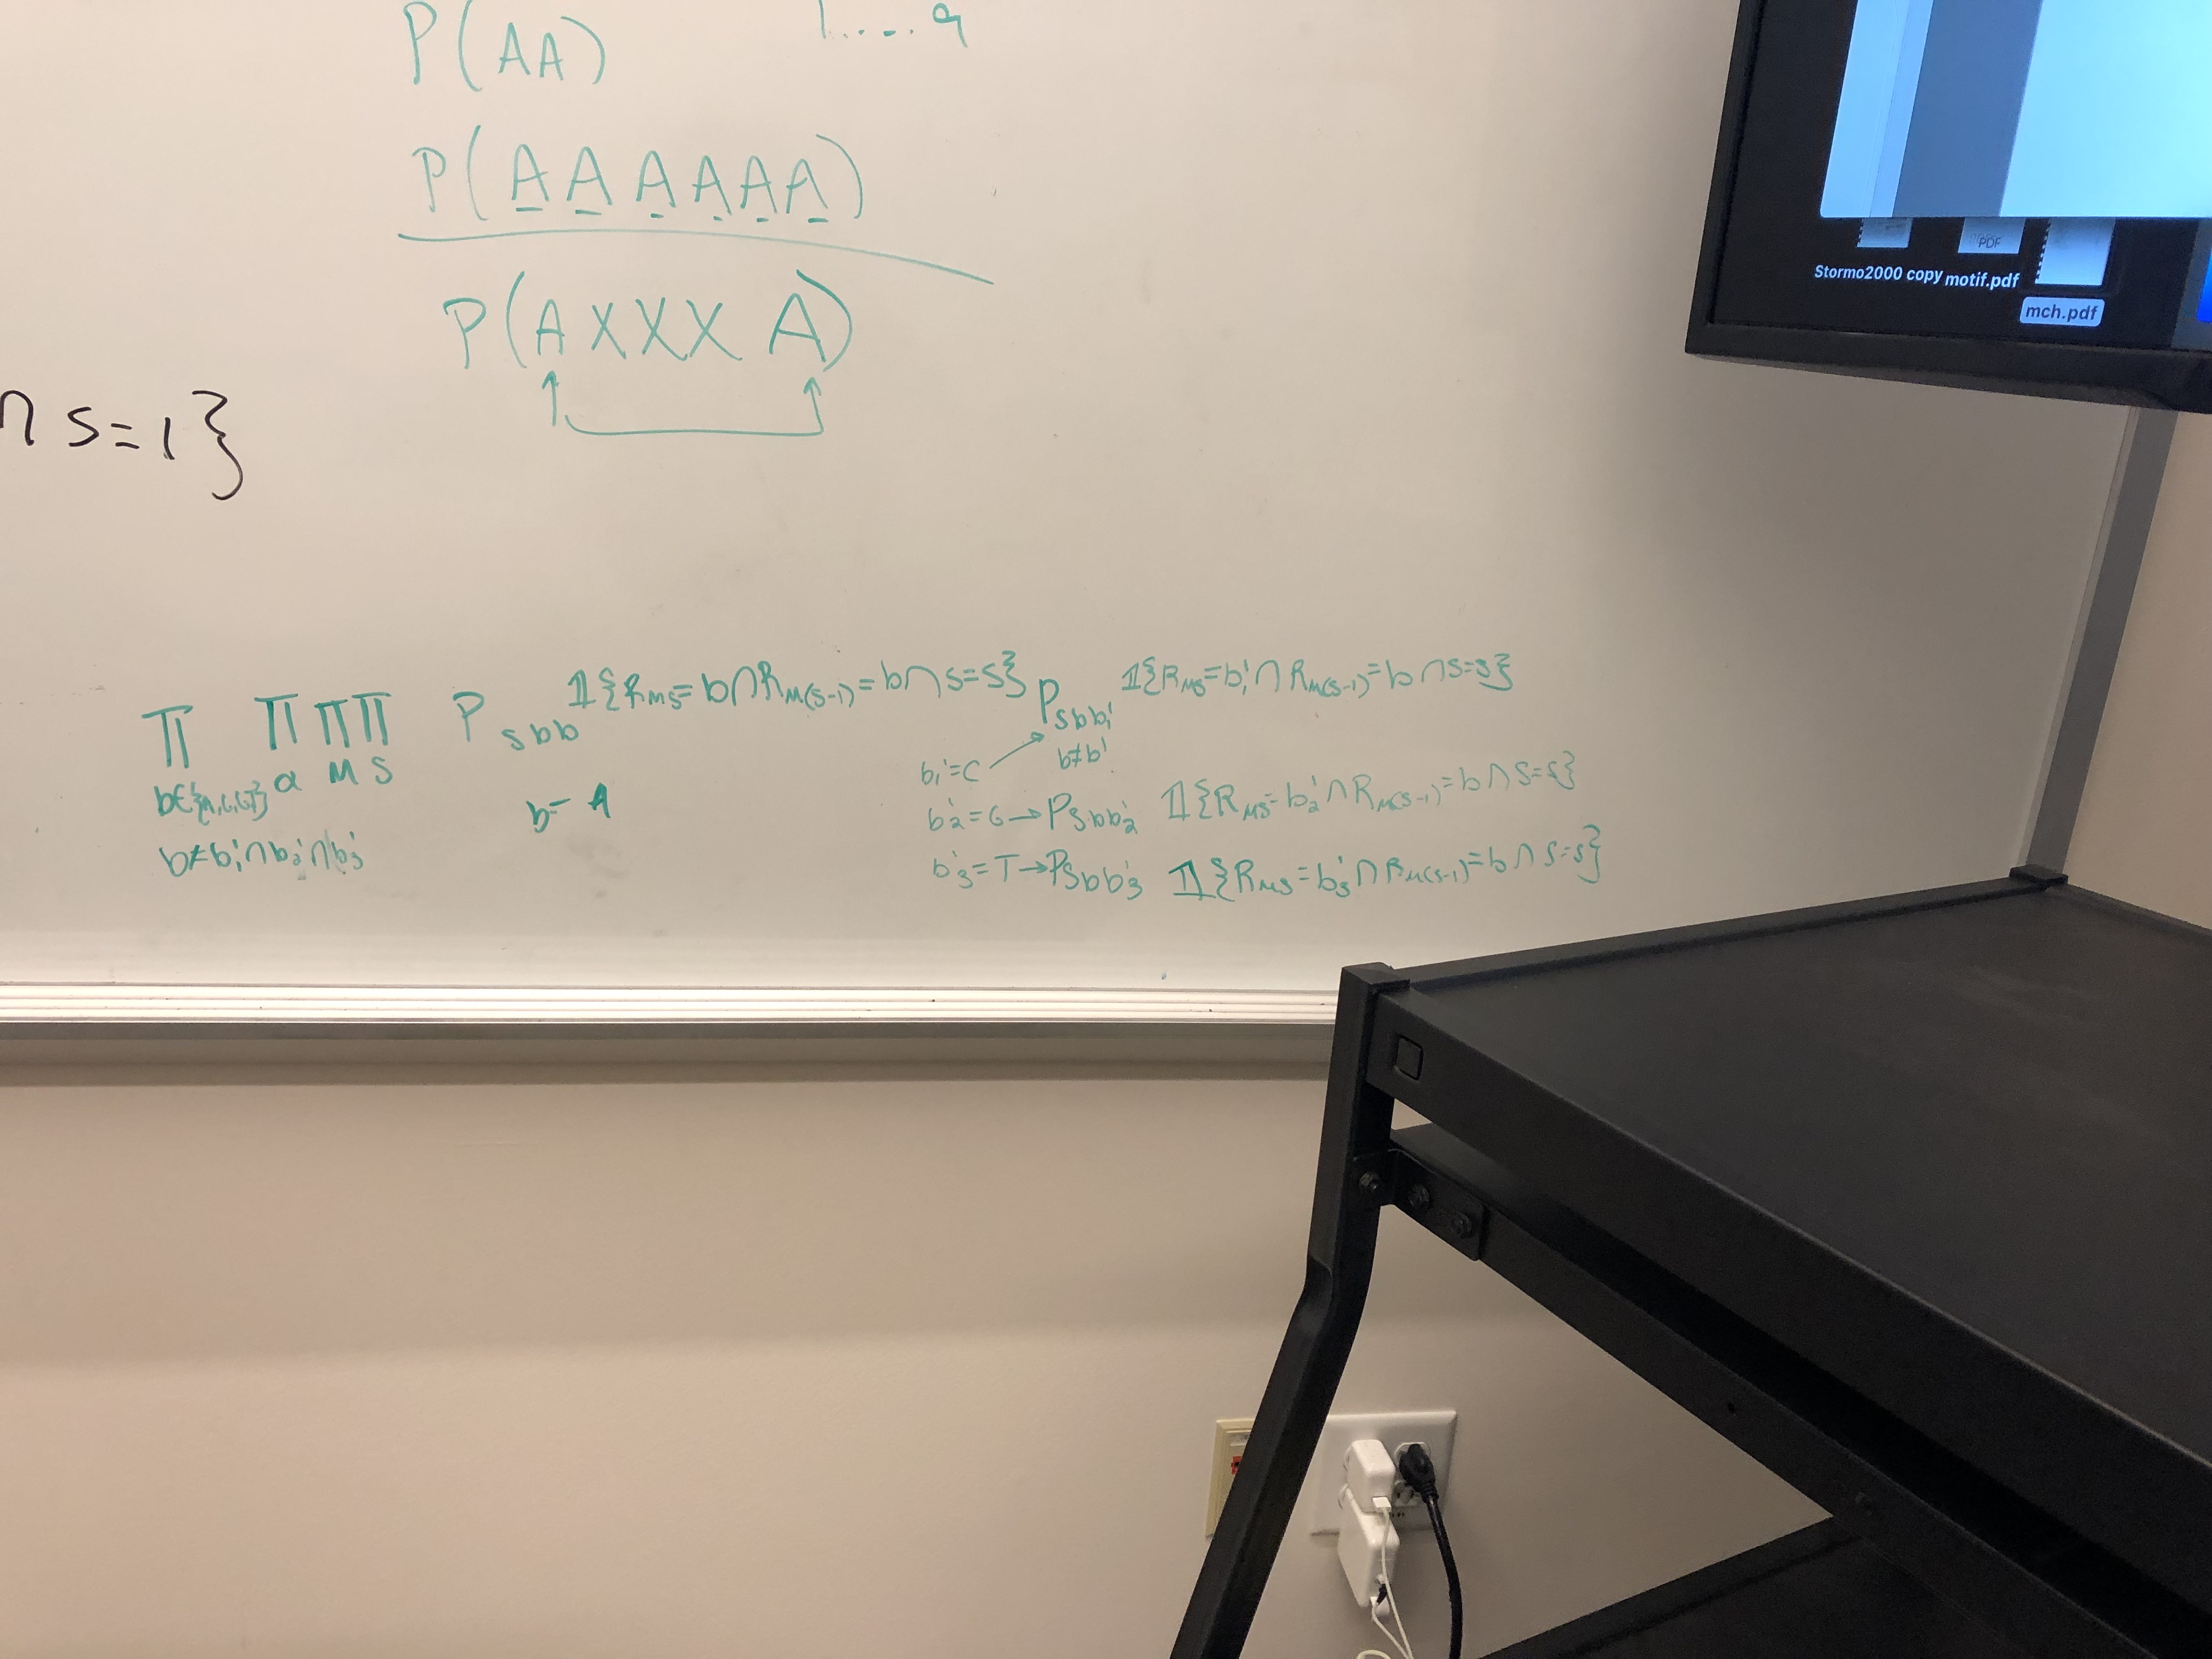 P(AA)
1....9
P(AAAAAA)
P(AXXXA)
∩ s=1}
∏ ∏ ∏ ∏ P_sbb 𝟙{R_MS=b∩R_M(S-1)=b∩s=s} P_sbb₁' 𝟙{R_MS=b₁'∩R_M(S-1)=b∩s=s}
b∈{A,C,G,T} α M S
b≠b'
b=A
b₁'=C
b₂'=G→P_sbb₂' 𝟙{R_MS=b₂'∩R_M(S-1)=b∩s=s}
b≠b₁'∩b₂'∩b₃'
b₃'=T→P_sbb₃' 𝟙{R_MS=b₃'∩R_M(S-1)=b∩s=s}
PDF
Stormo2000 copy
motif.pdf
mch.pdf